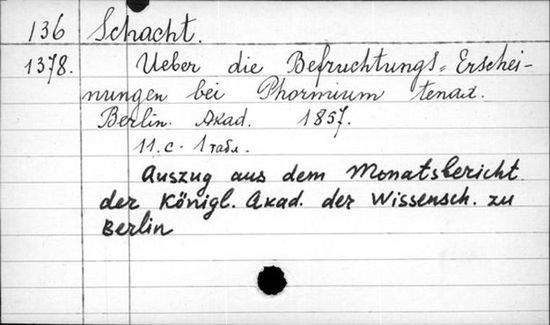 136 Schacht.
1378. Ueber die Befruchtungs-Erschei-
nungen bei Phormium tenax.
Berlin. Akad. 1857.
11. c. 1 табл.
Auszug aus dem Monatsbericht
der Königl. Akad. der Wissensch. zu
Berlin